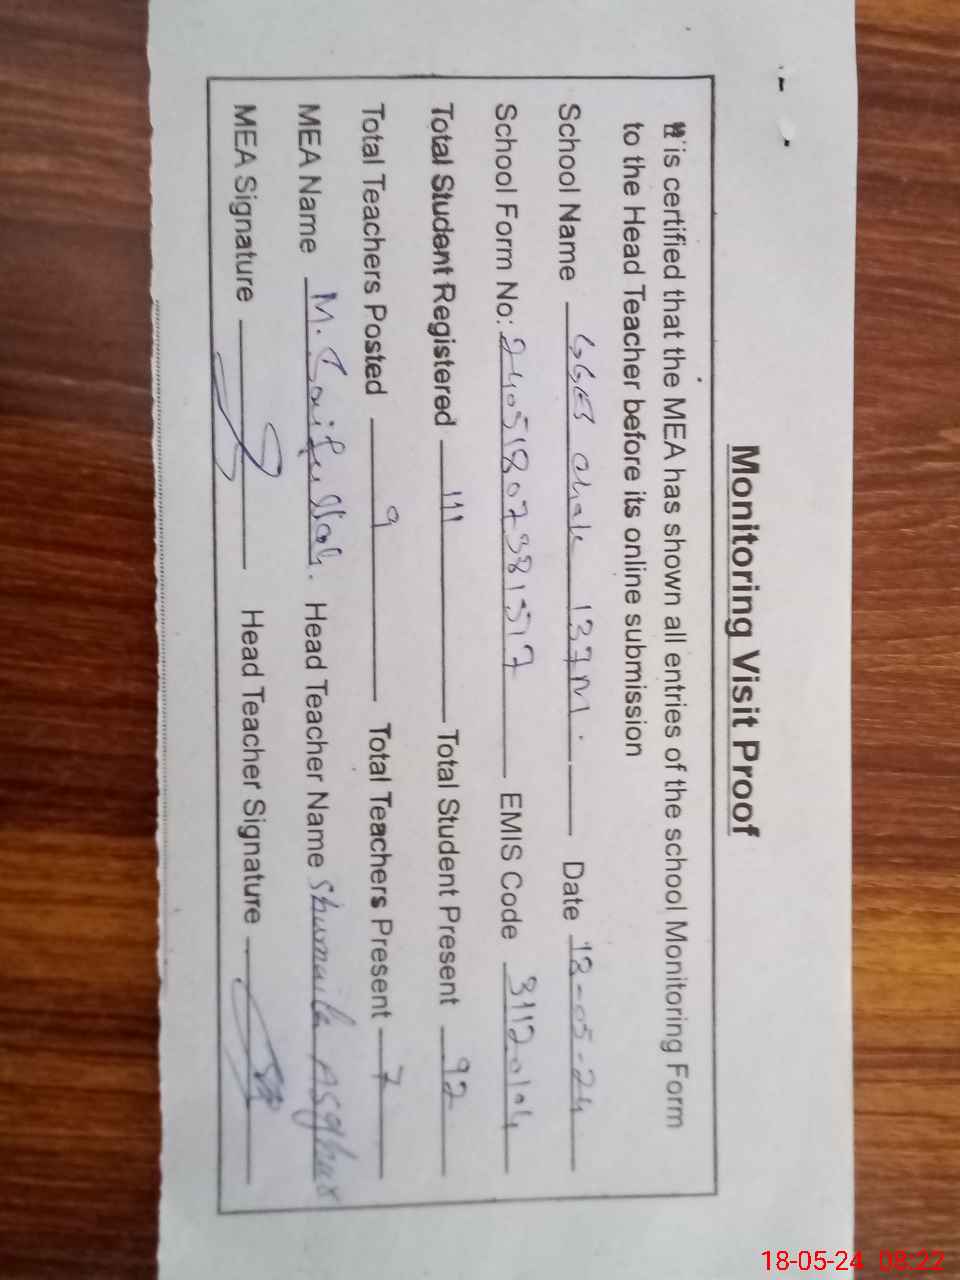 Monitoring Visit Proof
It is certified that the MEA has shown all entries of the school Monitoring Form
to the Head Teacher before its online submission
School Name GGES chak 137M. Date 18-05-24
School Form No: 24051807381517 EMIS Code 31120104
Total Student Registered 111 Total Student Present 92
Total Teachers Posted 9 Total Teachers Present 7
MEA Name M. Saifullah. Head Teacher Name Shumaila Asghar
MEA Signature Head Teacher Signature
18-05-24 08:22